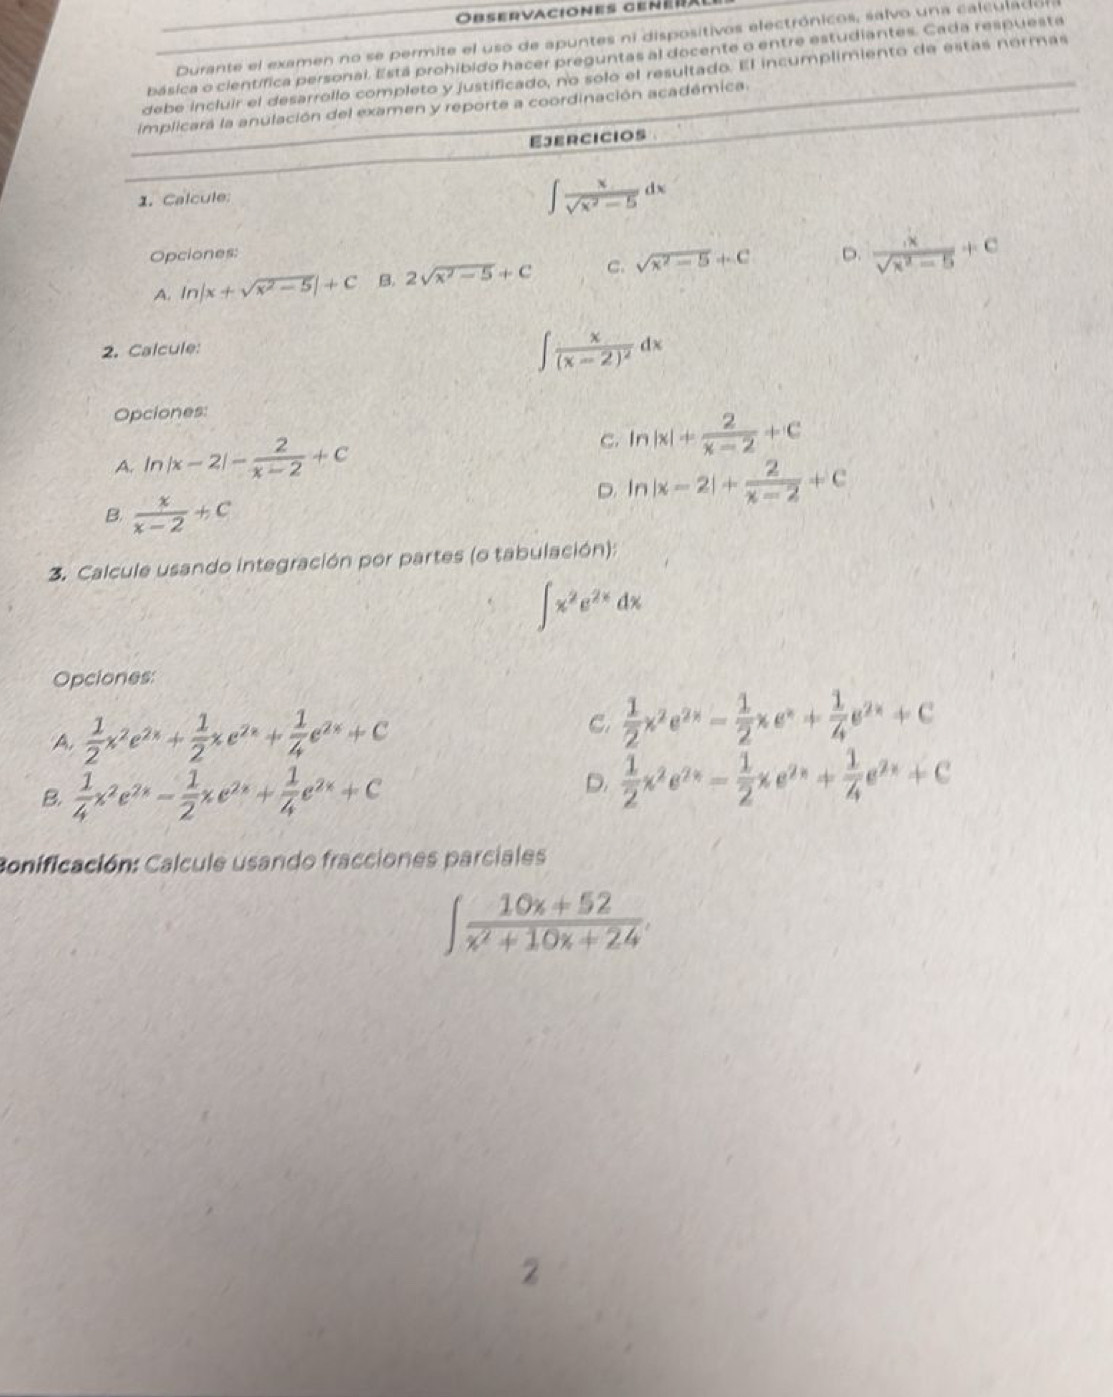 OBSERVACIONES GENERALES
Durante el examen no se permite el uso de apuntes ni dispositivos electrónicos, salvo una calculadora
básica o científica personal. Está prohibido hacer preguntas al docente o entre estudiantes. Cada respuesta
debe incluir el desarrollo completo y justificado, no solo el resultado. El incumplimiento de estas normas
implicará la anulación del examen y reporte a coordinación académica.
EJERCICIOS
1. Calcule:
∫ x/√(x² − 5) dx
Opciones:
A. ln|x + √(x² − 5)| + C B. 2√(x² − 5) + C C. √(x² − 5) + C D. x/√(x² − 5) + C
2. Calcule:
∫ x/(x − 2)² dx
Opciones:
A. ln|x − 2| − 2/(x − 2) + C
B. x/(x − 2) + C
C. ln|x| + 2/(x − 2) + C
D. ln|x − 2| + 2/(x − 2) + C
3. Calcule usando integración por partes (o tabulación):
∫ x²e²ˣ dx
Opciones:
A. 1/2 x²e²ˣ + 1/2 xe²ˣ + 1/4 e²ˣ + C
B. 1/4 x²e²ˣ − 1/2 xe²ˣ + 1/4 e²ˣ + C
C. 1/2 x²e²ˣ − 1/2 xeˣ + 1/4 e²ˣ + C
D. 1/2 x²e²ˣ − 1/2 xe²ˣ + 1/4 e²ˣ + C
Bonificación: Calcule usando fracciones parciales
∫ (10x + 52)/(x² + 10x + 24).
2